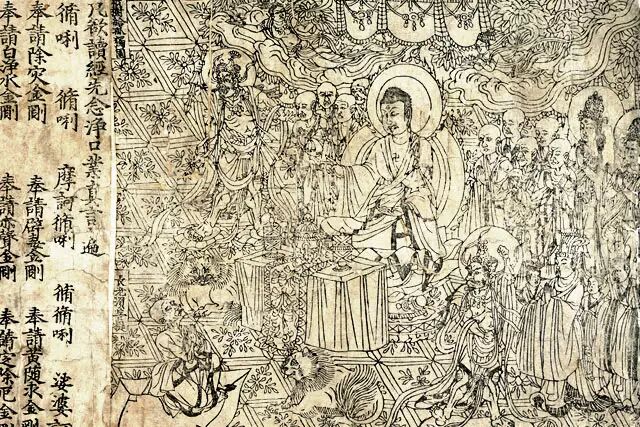 祇樹給孤獨園
長老須菩提
凡欲讀經先念淨口業真言遍
脩唎 脩唎 摩訶脩唎 脩脩唎 娑婆
奉請除灾金剛 奉請辟毒金剛 奉請黃隨求金剛
奉請白淨水金剛 奉請赤聲金剛 奉請定除厄金剛